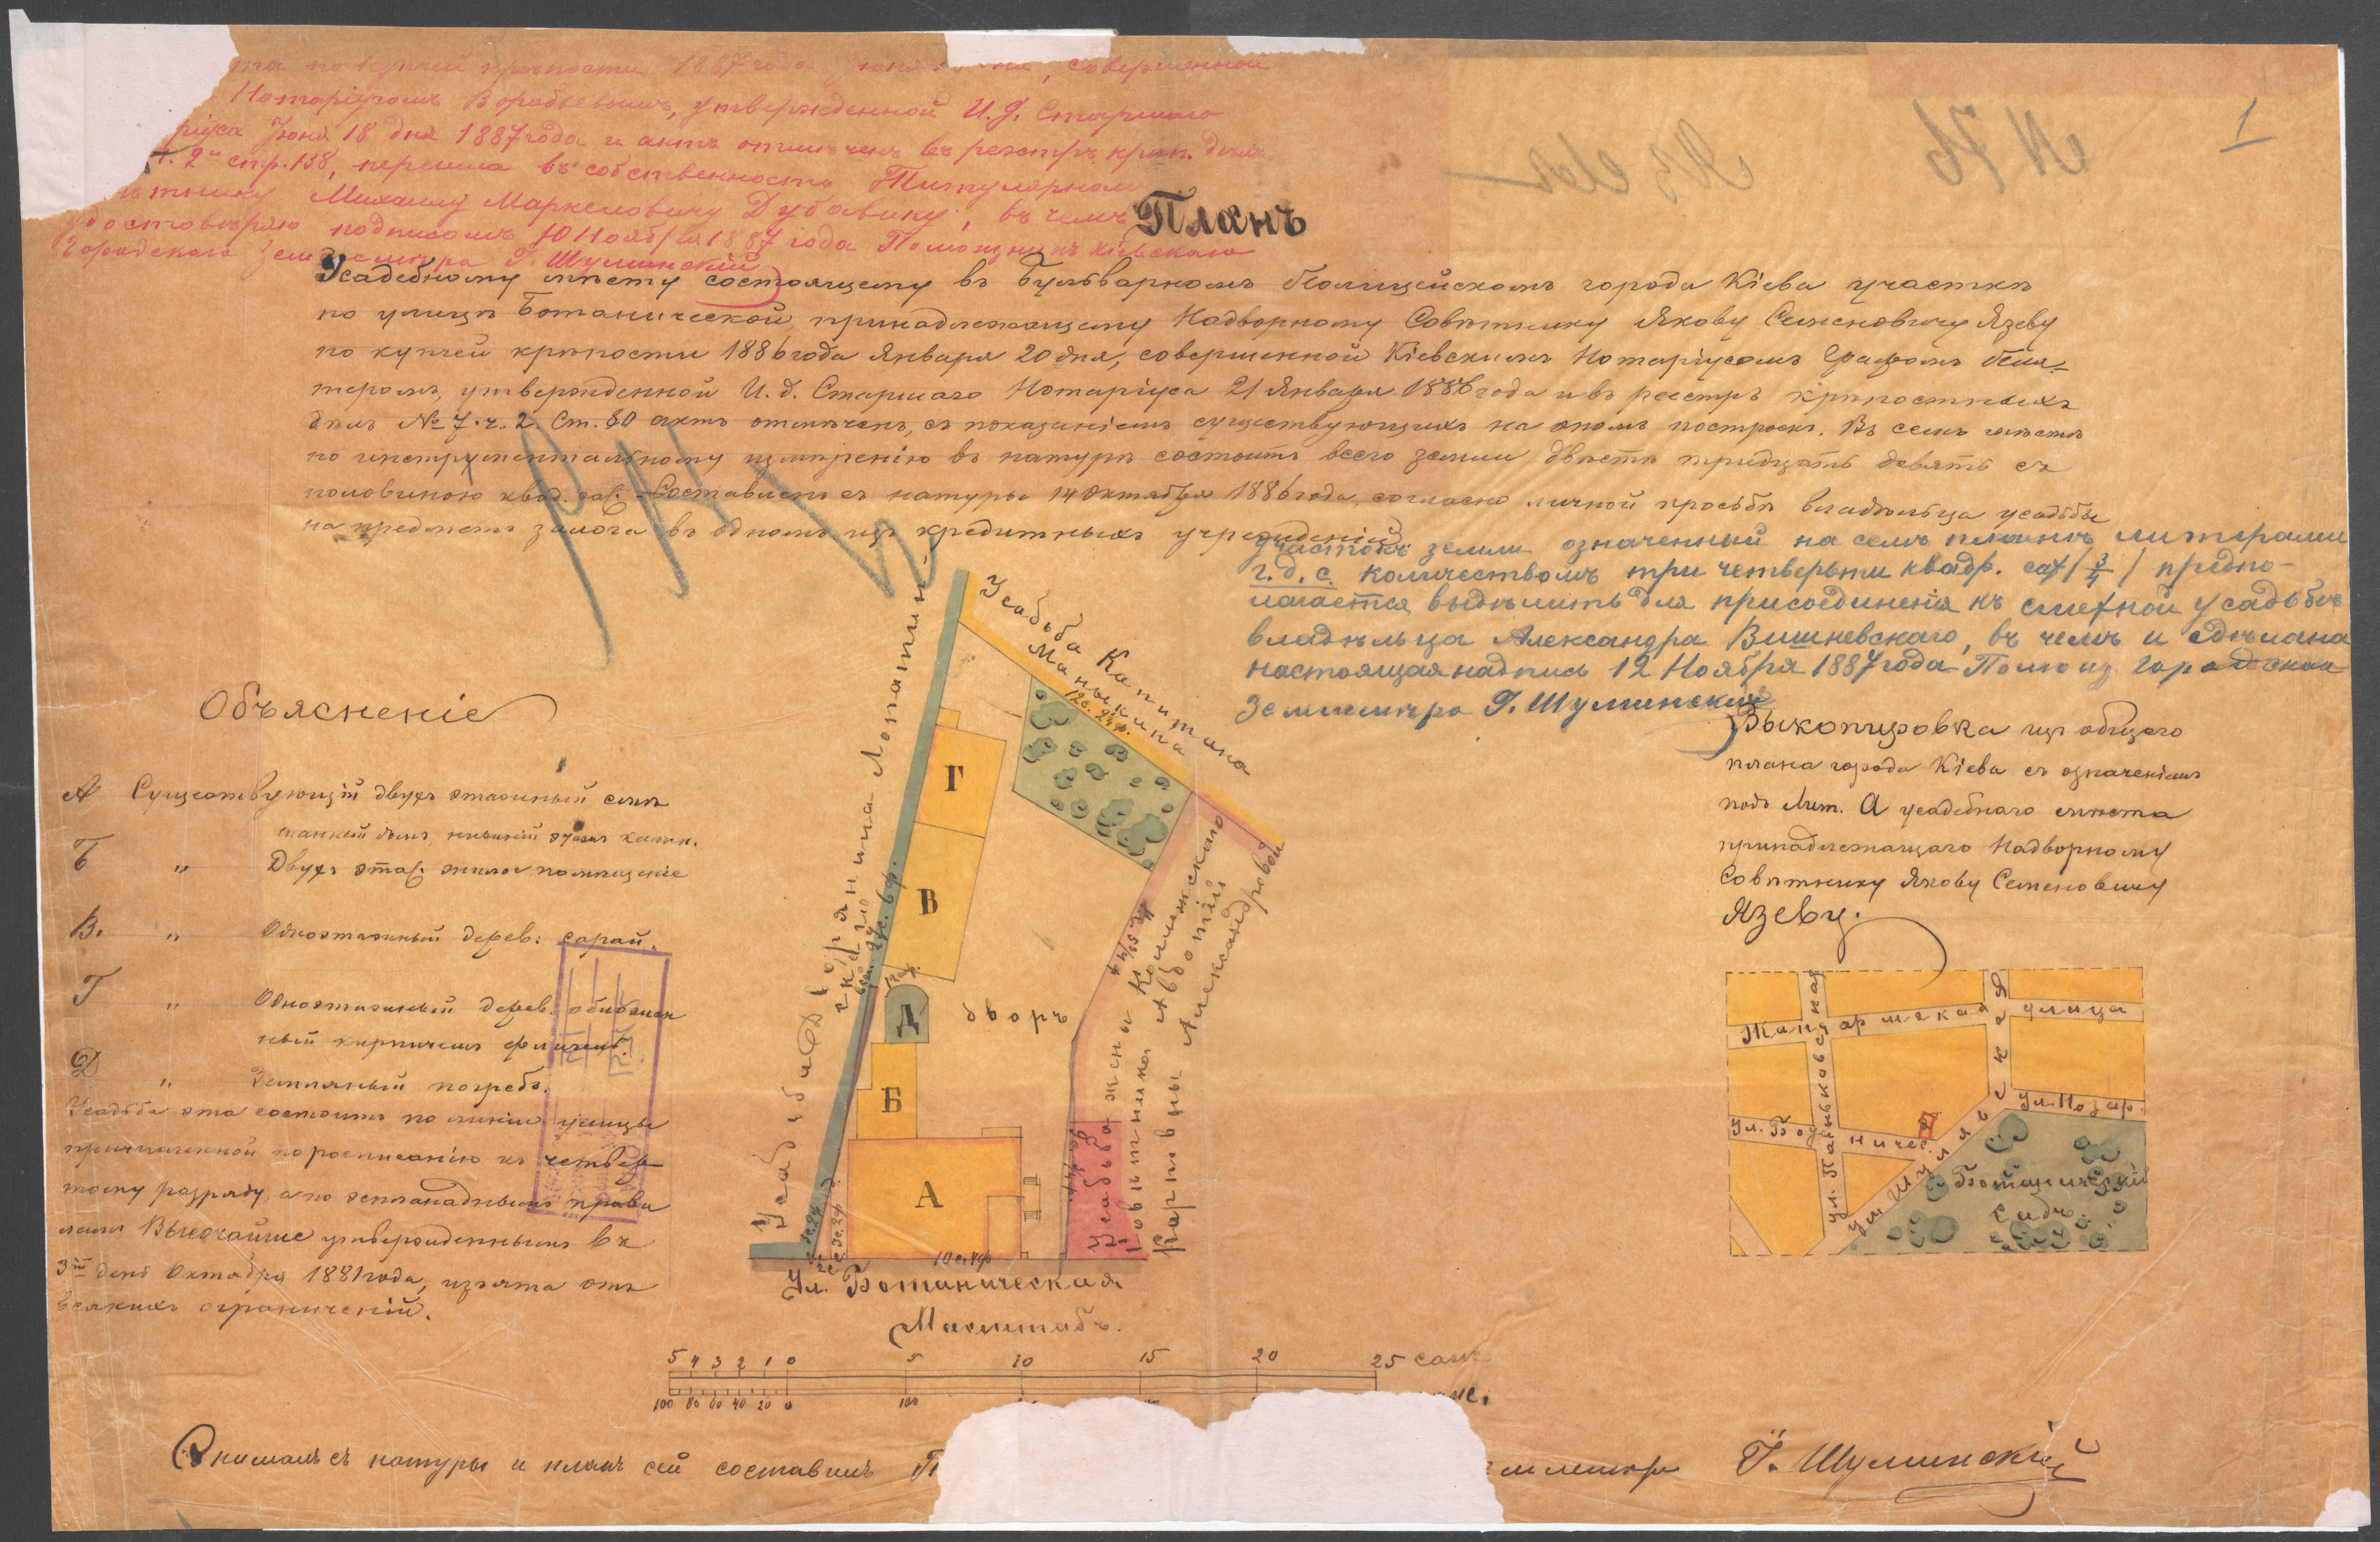 по купчей крѣпости 1887 года Іюня, совершенной
Нотаріусомъ Воробьевымъ, утвержденной И. д. Старшаго
Іюня 18 дня 1887 года и актъ отмѣченъ въ реестрѣ крѣп. дѣлъ
2й стр. 138, перешла въ собственность Титулярному
Михаилу Маркеловичу Дубовику, въ чемъ
удостовѣряю подписомъ 10 Ноября 1887 года Помощникъ Кіевскаго
Городскаго Землемѣра Г. Шуминскій
1
N 76
Планъ
Усадебному мѣсту состоящему въ Бульварномъ Полицейскомъ города Кіева участкѣ
по улицѣ Ботанической, принадлежащему Надворному Совѣтнику Якову Семеновичу Язеву
по купчей крѣпости 1886 года Января 20 дня, совершенной Кіевскимъ Нотаріусомъ
утвержденной И. д. Старшаго Нотаріуса 21 Января 1886 года и въ реестрѣ крѣпостныхъ
дѣлъ № 7. ч. 2. Ст. 80 актъ отмѣченъ, съ показаніемъ существующихъ на ономъ построекъ. Въ семъ мѣстѣ
по инструментальному измѣренію въ натурѣ состоитъ всего земли двѣсти тридцать девять съ
половиною квад. саж. Составленъ съ натуры 14 Октября 1886 года, согласно личной просьбы владѣльца усадьбы
на предметъ залога въ одномъ изъ кредитныхъ учрежденій
Участокъ земли означенный на семъ планѣ литерами
г. д. с. количествомъ три четверти квадр. саж / 3/4 / предпо-
лагается выдѣлить для присоединенія къ смежной усадьбѣ
владѣльца Александра Вишневскаго, въ чемъ и сдѣлана
настоящая надпись 12 Ноября 1887 года Помощ. Городскаго
Землемѣра Г. Шуминскій
Объясненіе
А Существующій двухъ этажный смѣ
шанный домъ, нижній этажъ камен.
Б " Двухъ этаж. жилое помѣщеніе
В. " Одноэтажный дерев. сарай.
Г " Одноэтажный дерев. обложен
ный кирпичемъ флигель.
Д " Земляный погребъ.
Усадьба эта состоитъ по линіи улицы
причисленной по росписанію къ четвер
тому разряду, а по эспланаднымъ прави
ламъ Высочайше утвержденнымъ въ
3й день Октября 1881 года, изъята отъ
всякихъ ограниченій.
Усадьба Капитана
Манькина
12с. 2½ф.
Усадьба Дворянина Лопатин
Г
В
Д
Б
А
дворъ
10с. 4ф
Усадьба жены Коллежскаго
Совѣтника Авдотіи
Карповны Александровой
Ул. Ботаническая.
Масштабъ.
5 4 3 2 1 0 5 10 15 20 25 саж.
100 80 60 40 20 0 100
Выкопировка изъ общаго
плана города Кіева съ означеніемъ
подъ Лит. А усадебнаго мѣста
принадлежащаго Надворному
Совѣтнику Якову Семеновичу
Язеву.
Жандармская улица
Ул. Паньковская
Ул. Ботаничес.
Ул. Назар.
Ул. Шулявская
А
Ботаническій
Садъ.
Снималъ съ натуры и планъ сей составилъ Г. Шуминскій